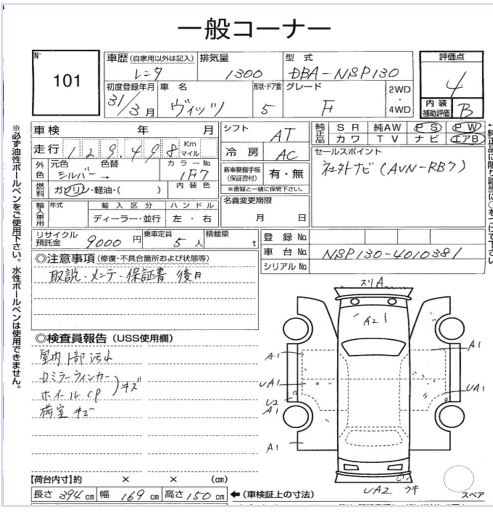 一般コーナー
No 101
車歴 (自家用以外は記入) レンタ
排気量 1300
型式 DBA-NSP130
評価点 4
初度登録年月 31/3月
車名 ヴィッツ
形状・ドア数 5
グレード F
2WD・4WD
内装補助評価 B
車検 年 月
シフト AT
純正品 SR 純AW PS PW
カワ TV ナビ エアB
走行 129,498 Km マイル
冷房 AC
セールスポイント
社外ナビ (AVN-RB7)
外色 元色 シルバー → 色替
カラーNo 1F7
新車整備手帳(保証書付) 有・無
※書類と一緒に保管下さい。
燃料 ガソリン・軽油・( )
内装色
名義変更期限
月 日
輸入車用 年式 輸入区分 ディーラー・並行
ハンドル 左・右
リサイクル預託金 9000円
乗車定員 5人
積載量 t
登録No.
車台No. NSP130-4010381
シリアルNo.
◎注意事項 (修復・不具合箇所および状態等)
取説・メンテ・保証書 後日
◎検査員報告 (USS使用欄)
室内上部汚れ
ドアミラーウィンカー
ホイールCP キズ
荷室キズ
スリA
A21
A1
A1
UA1
UA1
U2
A1
A1
A1
UA2 ウキ
スペア
【荷台内寸】約 × × (cm)
長さ 394cm 幅 169cm 高さ 150cm ←(車検証上の寸法)
※必ず油性ボールペンをご使用下さい。水性ボールペンは使用できません。